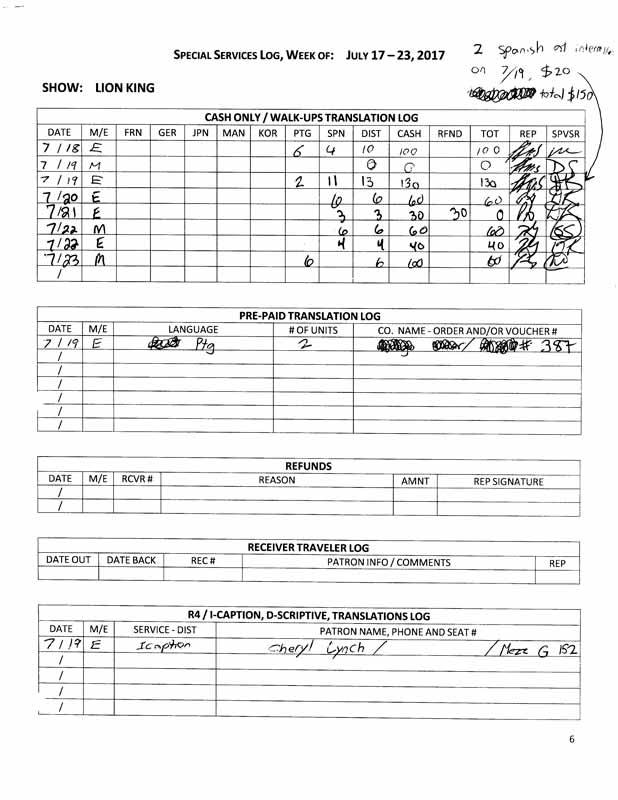 SPECIAL SERVICES LOG, WEEK OF: JULY 17 – 23, 2017
2 Spanish at
on 7/19, $20
total $150
SHOW: LION KING
CASH ONLY / WALK-UPS TRANSLATION LOG
DATE M/E FRN GER JPN MAN KOR PTG SPN DIST CASH RFND TOT REP SPVSR
7/18 E 6 4 10 100 100
7/19 M 0 0 0 DS
7/19 E 2 11 13 130 130
7/20 E 6 6 60 60
7/21 E 3 3 30 30 0
7/22 M 6 6 60 60
7/22 E 4 4 40 40
7/23 M 6 6
/
PRE-PAID TRANSLATION LOG
DATE M/E LANGUAGE # OF UNITS CO. NAME - ORDER AND/OR VOUCHER #
7/19 E Ptg 2 / # 387
/
/
/
/
/
/
REFUNDS
DATE M/E RCVR # REASON AMNT REP SIGNATURE
/
/
RECEIVER TRAVELER LOG
DATE OUT DATE BACK REC # PATRON INFO / COMMENTS REP
R4 / I-CAPTION, D-SCRIPTIVE, TRANSLATIONS LOG
DATE M/E SERVICE - DIST PATRON NAME, PHONE AND SEAT #
7/19 E Icaption Cheryl Lynch / / Mezz G 152
/
/
/
/
6